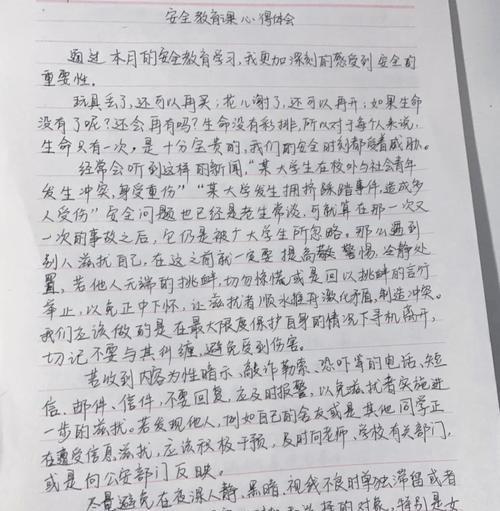 安全教育课心得体会
通过本月的安全教育学习，我更加深刻的感受到安全的
重要性。
玩具丢了，还可以再买；花儿谢了，还可以再开；如果生命
没有了呢？还会再有吗？生命没有彩排，所以对于每个人来说，
生命只有一次，是十分宝贵的，我们的安全时刻都受着威胁。
经常会听到这样的新闻，“某大学生在校外与社会青年
发生冲突，身受重伤”“某大学发生拥挤踩踏事件，造成多
人受伤”安全问题也已经是老生常谈，可就算在那一次又
一次的事故之后，它仍是被广大学生所忽略。那么遇到
别人滋扰自己，在这之前就一定要提高警惕，冷静处
置，若他人无端的挑衅，切勿惊慌或是回以挑衅的言行
举止，以免正中下怀，让滋扰者顺水推舟激化矛盾，制造冲突。
我们应该做的是在最大限度保护自身的情况下寻机离开，
切记不要与其纠缠，避免受到伤害。
若收到内容为性暗示、敲诈勒索、恐吓等的电话、短
信、邮件、信件，不要回复，应及时报警，以免滋扰者实施进
一步的滋扰。若发现他人，例如自己的舍友或是其他同学正
在遭受信息滋扰，应该积极干预，及时向老师、学校有关部门，
或是向公安部门反映。
尽量避免在夜深人静、黑暗、视线不良时单独滞留或者
选择的对象，特别是女